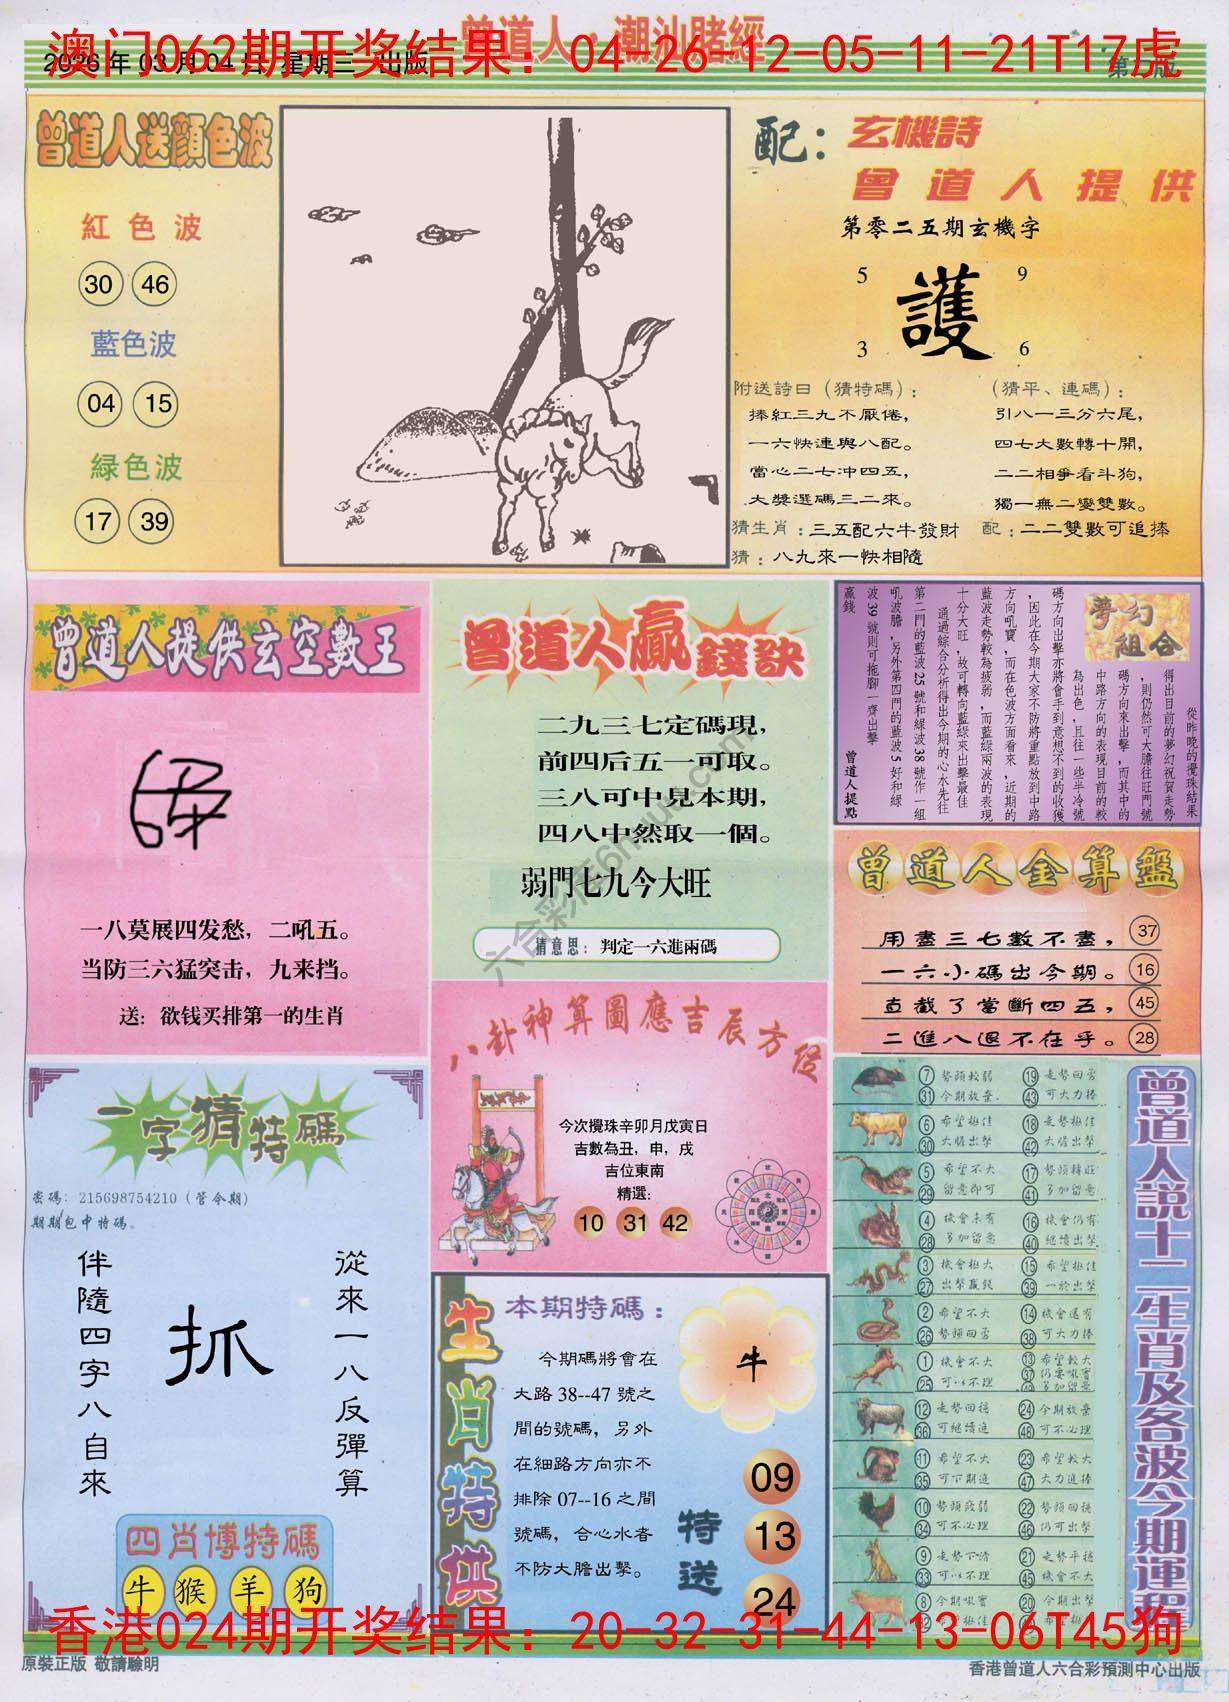 曾道人·潮汕賭經
澳门062期开奖结果：04-26-12-05-11-21T17虎
2026年03月04日 星期三 出版
曾道人送顏色波
紅色波
30 46
藍色波
04 15
緑色波
17 39
配：玄機詩
曾道人提供
第零二五期玄機字
5 9
護
3 6
附送詩曰（猜特碼）：
捧紅三九不厭倦，
一六快連與八配。
當心二七冲四五，
大獎選碼三二來。
（猜平、連碼）：
引八一三分六尾，
四七大數轉十開，
二二相爭看斗狗，
獨一無二變雙數。
猜生肖：三五配六牛發財 配：二二雙數可追捧
猜：八九來一快相隨
曾道人提供玄空數王
一八莫展四发愁，二吼五。
当防三六猛突击，九来挡。
送：欲钱买排第一的生肖
曾道人贏錢訣
二九三七定碼現，
前四后五一可取。
三八可中見本期，
四八中然取一個。
弱門七九今大旺
猜意思：判定一六進兩碼
夢幻組合
從昨晚的攪珠結果
得出目前的夢幻祝賀走勢
，則仍然可大膽往旺門號
碼方向來出擊，而其中的
中路方向的表現目前的較
為出色，且往一些半冷號
碼方向出擊亦將會手到意想不到的收獲
，因此在今期大家不防將重點放到中路
方向吼寶，而在色波方面看來，近期的
藍波走勢較為疲弱，而藍綠兩波的表現
十分大旺，故可轉向藍綠來出擊最佳
通過綜合分析得出今期的心水先往
第二門的藍波25號和綠波38號作一組
吼波膽，另外第四門的藍波5好和綠
波39號則可拖腳一齊出擊
贏錢
曾道人提點
曾道人金算盤
用盡三七數不盡，37
一六小碼出今期。16
直截了當斷四五，45
二進八退不在乎。28
八卦神算圖應吉辰方位
今次攪珠辛卯月戊寅日
吉數為丑，申，戌
吉位東南
精選:
10 31 42
一字猜特碼
密碼：215698754210（管令期）
期期包中特碼。
從來一八反彈算
抓
伴隨四字八自來
四肖博特碼
牛 猴 羊 狗
生肖特供
本期特碼：
今期碼將會在
大路38--47號之
間的號碼，另外
在細路方向亦不
排除07--16之間
號碼，合心水者
不防大膽出擊。
牛
特送
09
13
24
曾道人說十二生肖及各波今期運程
7 勢頭較弱 19 走勢回勇
31 今期放棄 43 可大力捧
6 希望極佳 18 走勢極佳
30 大膽出擊 42 大膽出擊
5 希望不大 17 勢頭轉旺
29 留意即可 41 多加留意
4 機會未有 16 機會仍有
28 多加留意 40 繼續出擊
3 機會極大 15 希望極佳
27 出擊贏錢 39 一於出擊
2 希望不大 14 機會還有
26 勢頭回勇 38 可大力捧
1 機會不大 13 希望較大
25 可以不理 37 仍要吼寶
12 走勢回穩 24 今期放棄
36 可繼續追 48 可不必理
11 希望不大 23 希望較大
35 可下期追 47 大力追捧
10 勢頭疲弱 22 勢頭回穩
34 可不必理 46 仍可出擊
9 走勢下滑 21 走勢平穩
33 可以不理 45 機會不大
8 今期吼寶 20 今期出擊
香港024期开奖结果：20-32-31-44-13-06T45狗
原裝正版 敬請驗明
香港曾道人六合彩預測中心出版